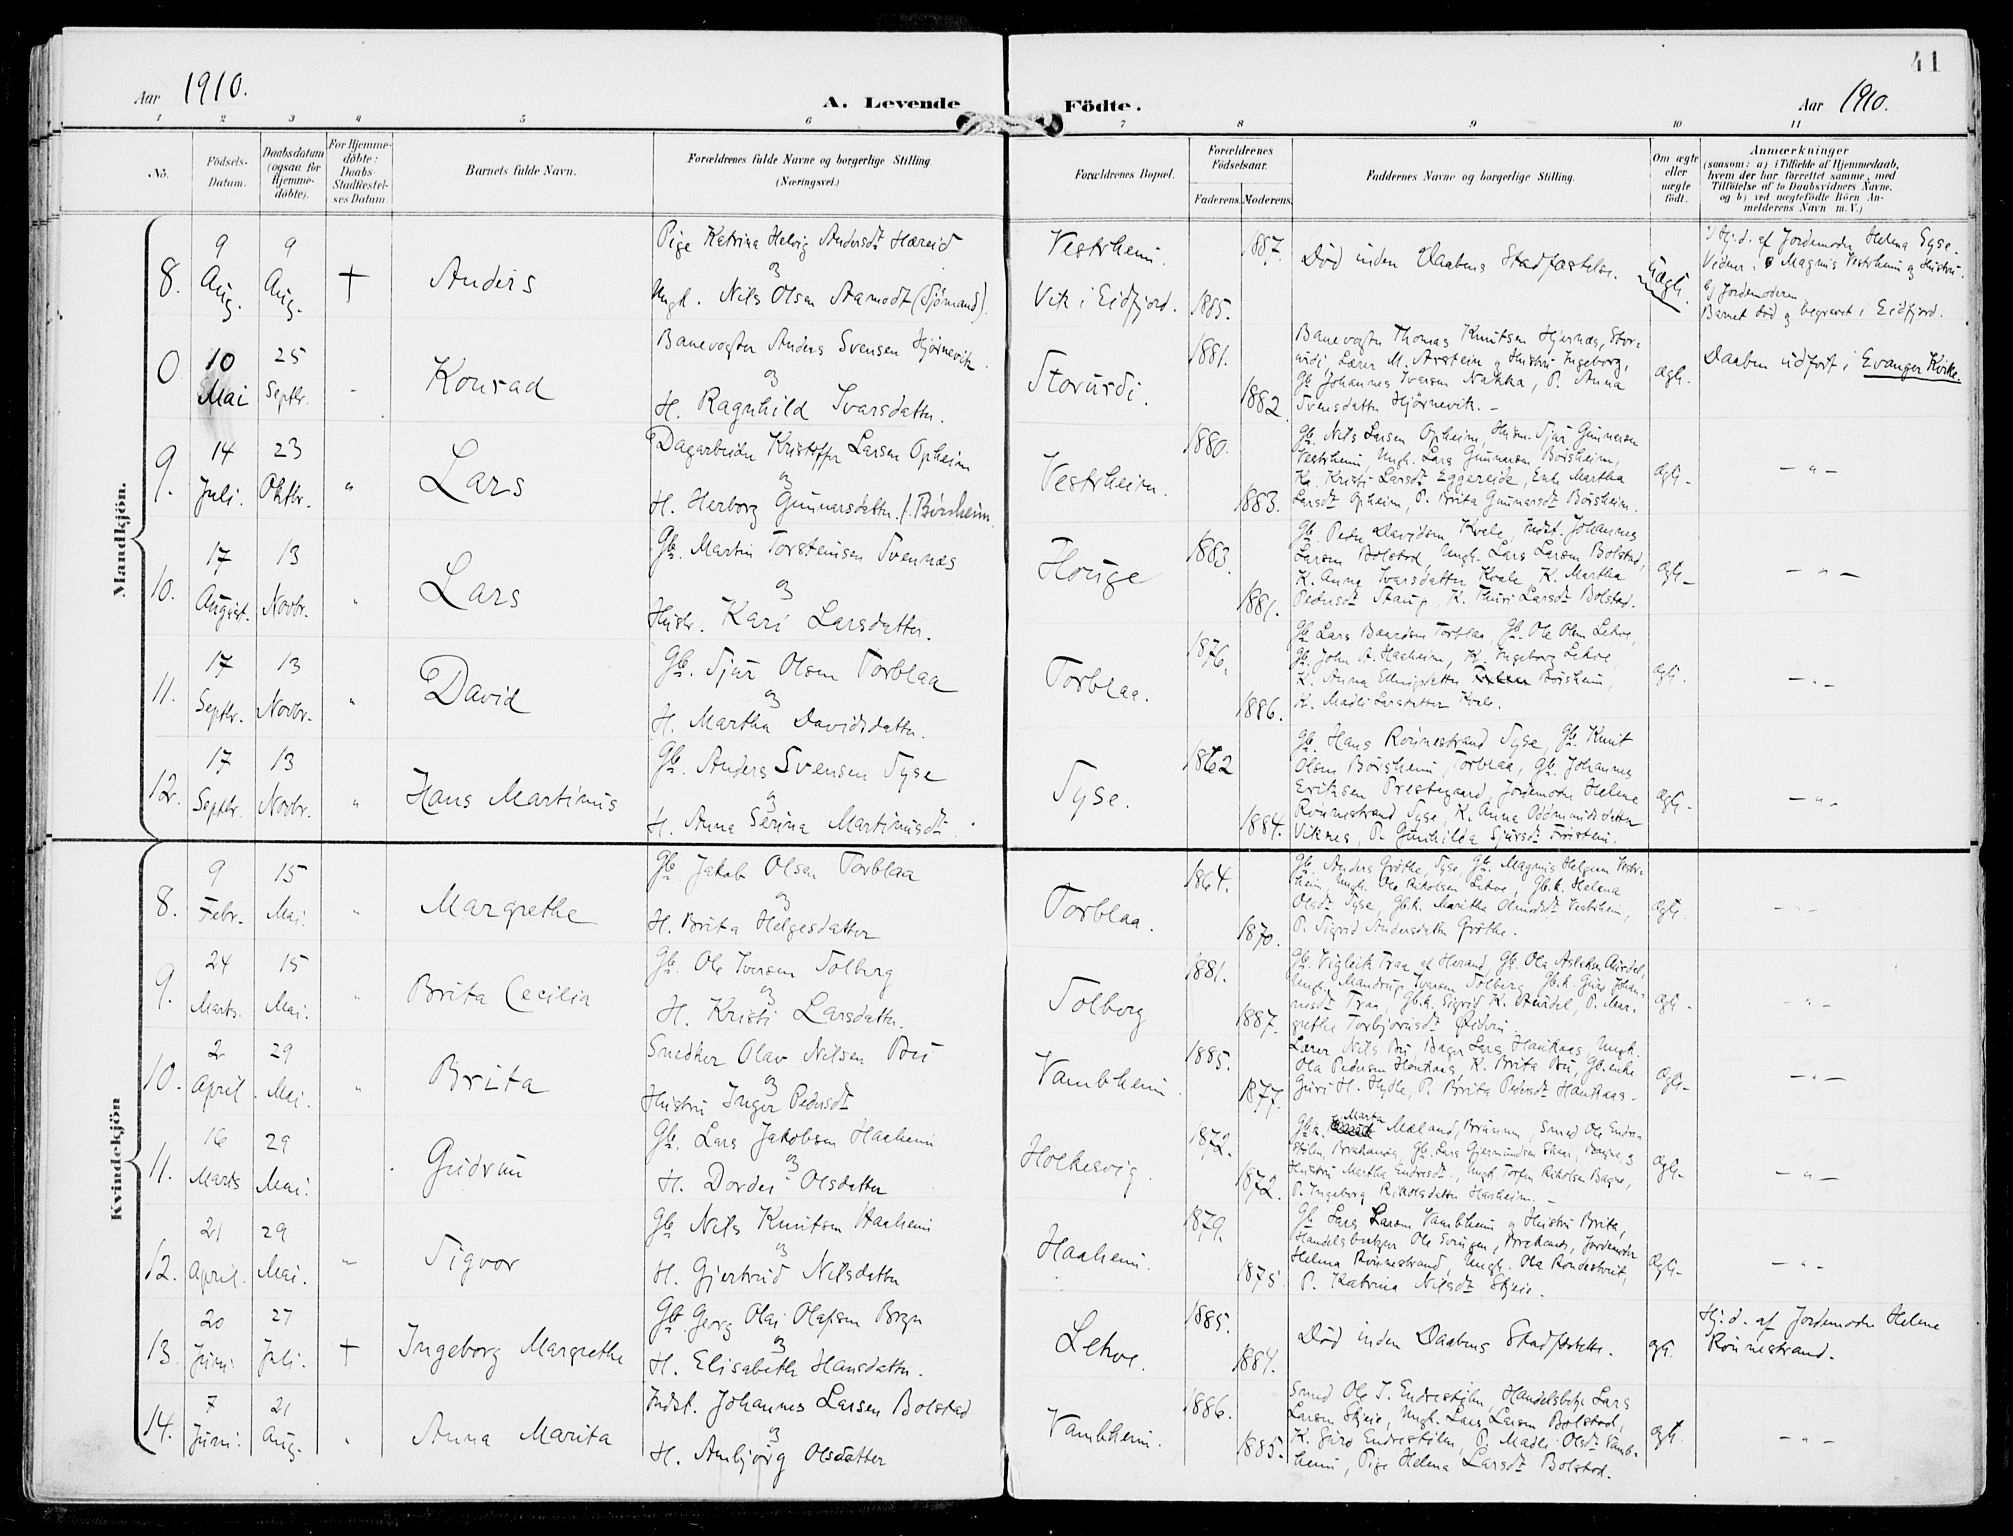 41
Aar 1910.
A. Levende Födte.
Aar 1910.
1 2 3 4 5 6 7 8 9 10 11
No.
Födsels-
Datum.
Daabsdatum
(ogsaa for
Hjemme-
döbte).
For Hjemme-
döbte:
Daabs-
Stadfæstel-
ses Datum.
Barnets fulde Navn.
Forældrenes fulde Navne og borgerlige Stilling.
(Næringsvei.)
Forældrenes Bopæl.
Forældrenes
Födselsaar.
Faderens. Moderens.
Faddernes Navne og borgerlige Stilling.
Om ægte
eller
uægte
født.
Anmærkninger
(saasom: a) i Tilfælde af Hjemmedaab,
hvem der har forrettet samme, med
Tilföielse af to Daabsvidners Navne,
og b) ved uægtefödte Börn An-
melderens Navn m. V.)
Mandkjön.
8.
9
Aug.
9
Aug.
†
Anders
Pige Katrina Helvig Andersdt Hæreid
og
Ungk. Nils Olsen Aamodt (Sjömand).
Vestrheim.
Vik i Eidfjord.
1887.
1885.
Död inden Daabens Stadfæstelse.
Uægte.
Hj.d. af Jordemoder Helena Syse.
Vidner: Magnus Vestrheim og Hustru.
b) Jordemoderen
Barnet död og begravet i Eidfjord.
0
10
Mai
25
Septbr.
Konrad
Banevogter Anders Svensen Hjørnevik
og
H. Ragnhild Ivarsdatter.
Storurdi.
1881.
1882
Banevogter Thomas Knutsen Hjernæs, Stor-
urdi, Lærer M. Arstein og Hustru Ingeborg,
Gb. Johannes Iversen Nakka, P. Anna
Svensdatter Hjörnevik. -
ægte.
Daaben udført i Evanger Kirke.
9.
14
Juli.
23
Oktbr.
"
Lars
Dagarbeider Kristoffer Larsen Opheim
og
H. Herborg Gunnarsdatter f. Børsheim.
Vestrheim.
1880.
1883.
Gb. Nils Larsen Opheim, Husm. Sjur Gunnarsen
Vestrheim, Ungk. Lars Gunnarsen Börsheim,
K. Kristi Larsdt Eggereide, Enke Martha
Larsdt Opheim, P. Brita Gunnarsdt Börsheim.
ægte -
- " -
10.
17
August.
13
Novbr.
"
Lars
Gb. Martin Torsteinsen Svennæs
og
Hustr. Kari Larsdatter.
Houge
1883
1881.
Gb. Peder Davidsen Kvale, Indst. Johannes
Larsen Bolstad, Ungk. Lars Larsen Bolstad,
K. Anna Ivarsdatter Kvale, K. Martha
Pedersdt Staup, K. Thuri Larsdt Bolstad.
ægte -
- " -
11.
17
Septbr.
13
Novbr.
"
David
Gb. Sjur Olsen Torblaa
og
H. Martha Davidsdatter.
Torblaa.
1876.
1886.
Gb. Lars Baardsen Torblaa, Gb. Ole Olsen Lekve,
Gb. John A. Haaheim, K. Ingeborg Lekve,
K. Anna Ellingsdatter Börsheim,
K. Madli Larsdatter Kvale.
ægte.
- " -
12.
17
Septbr.
13
Novbr.
"
Hans Martinus
Gb. Anders Svensen Syse
og
H. Anna Serina Martinusdt.
Syse.
1862
1884.
Gb. Hans Rönnestrand Syse, Gb. Knut
Olsen Börsheim Torblaa, Gb. Johannes
Eriksen Prestegaard, Jordemoder Helene
Rönnestrand Syse, K. Anna Oddmundsdatter
Viknes, P. Gunhilda Sjursdt Tristein.
ægte -
- " -
Kvindekjön
8.
9
Febr.
15
Mai.
"
Margrethe
Gb. Jakob Olsen Torblaa
og
H. Brita Helgesdatter
Torblaa.
1864.
1870.
Gb. Anders Gröthe, Syse, Gb. Magnus Helgesen Vestr-
heim, Ungk. Ole Rikolsen Lekve, Gb.k. Helena
Olsdt Syse, Gb.k. Maritha Olsdt Vestrheim,
P. Sigrid Andersdatter Gröthe.
ægte.
- " -
9.
24
Marts.
15
Mai.
"
Brita Cecilia
Gb. Ole Iversen Tolberg
og
H. Kristi Larsdatter.
Tolberg
1881.
1887.
Gb. Vigleik Traa af Herand, Gb. Ola Aslaksen Aurdal,
Ungk. Mandrup Iversen Tolberg, Gb.k. Guro Johan-
nesdt Traa, Gb.k. Sigrid K. Aurdal, P. Mar-
grethe Torbjörnsdt
ægte -
- " -
10.
2
April.
29
Mai.
"
Brita
Snedker Olav Nilsen Bu
og
Hustru Inger Pedersdt
Vambheim.
1885.
1877.
Lærer Nils Bu, Bager Lars Haukaas, Ungk.
Ola Pedersen Haukaas, K. Brita Bu, Gb.enke
Guri H. Hylle, P. Brita Pedersdt Haukaas -
ægte -
- " -
11.
16
Marts
29
Mai.
Gudrun
Gb. Lars Jakobsen Haaheim
og
H. Dordei Olsdatter
Holkesvig.
1872.
1872.
Gb.k. Marta Mæland, Bruravik, Smed Ole Endre-
stölen, Brakanes, Gb. Lars Gjermundsen Skaar, Bagne, og
Hustru Martha Endresdt., Ungk. Torfin Rikolsen Bagne,
P. Ingeborg Rikolsdatter Haaheim. -
ægte -
- " -
12.
21
April.
29
Mai.
"
Sigvor
Gb. Nils Knutsen Haaheim
og
H. Gjertrud Nilsdatter
Haaheim.
1879.
1875
Gb. Lars Larsen Vambheim og Hustru Brita,
Handelsbetjen Ole Svensen, Brakanes, Jordemoder
Helena Rönnestrand, Ungk. Ola Rondestveit,
P. Katrina Nilsdt Skjeie.
ægte -
- " -
13.
20
Juni.
27
Juli.
†
Ingeborg Margrethe
Gb. Georg Olai Olafsen Bryn
og
H. Elisabeth Hansdatter.
Lekve.
1885.
1884.
Död inden Daabens Stadfæstelse.
ægte.
Hj.d. af Jordemoder Helene
Rönnestrand.
14.
7
Juni.
21
Aug.
"
Anna Marita
Indst. Johannes Larsen Bolstad
og
H. Anbjörg Olsdatter
Vambheim.
1886.
1885.
Smed Ole J. Endrestölen, Handelsbetj. Lars
Larsen Skjeie, Ungk. Lars Larsen Bolstad,
K. Guro Endrestölen, P. Madli Olsdt Vamb-
heim, Pige Helena Larsdt Bolstad.
ægte.
- " -